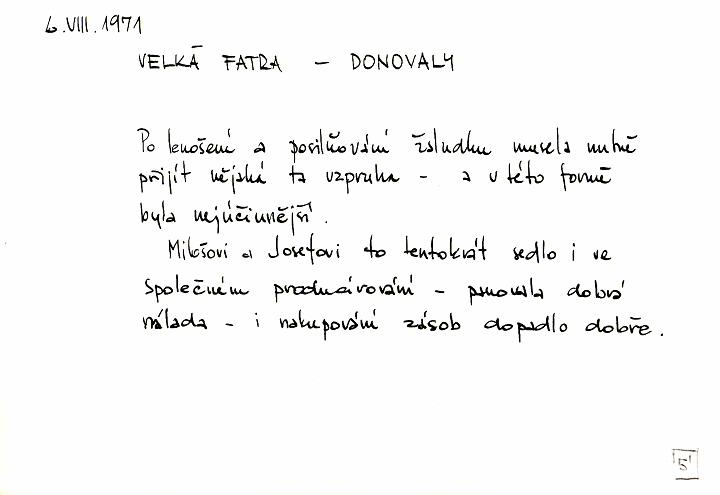 6.VIII.1971
VELKÁ FATRA - DONOVALY
Po lenošení a posilňování žaludku musela nutně
přijít nějaká ta vzpruha - a v této formě
byla nejúčinnější.
Milošovi a Josefovi to tentokrát sedlo i ve
společném producírování - panovala dobrá
nálada - i nakupování zásob dopadlo dobře.
5